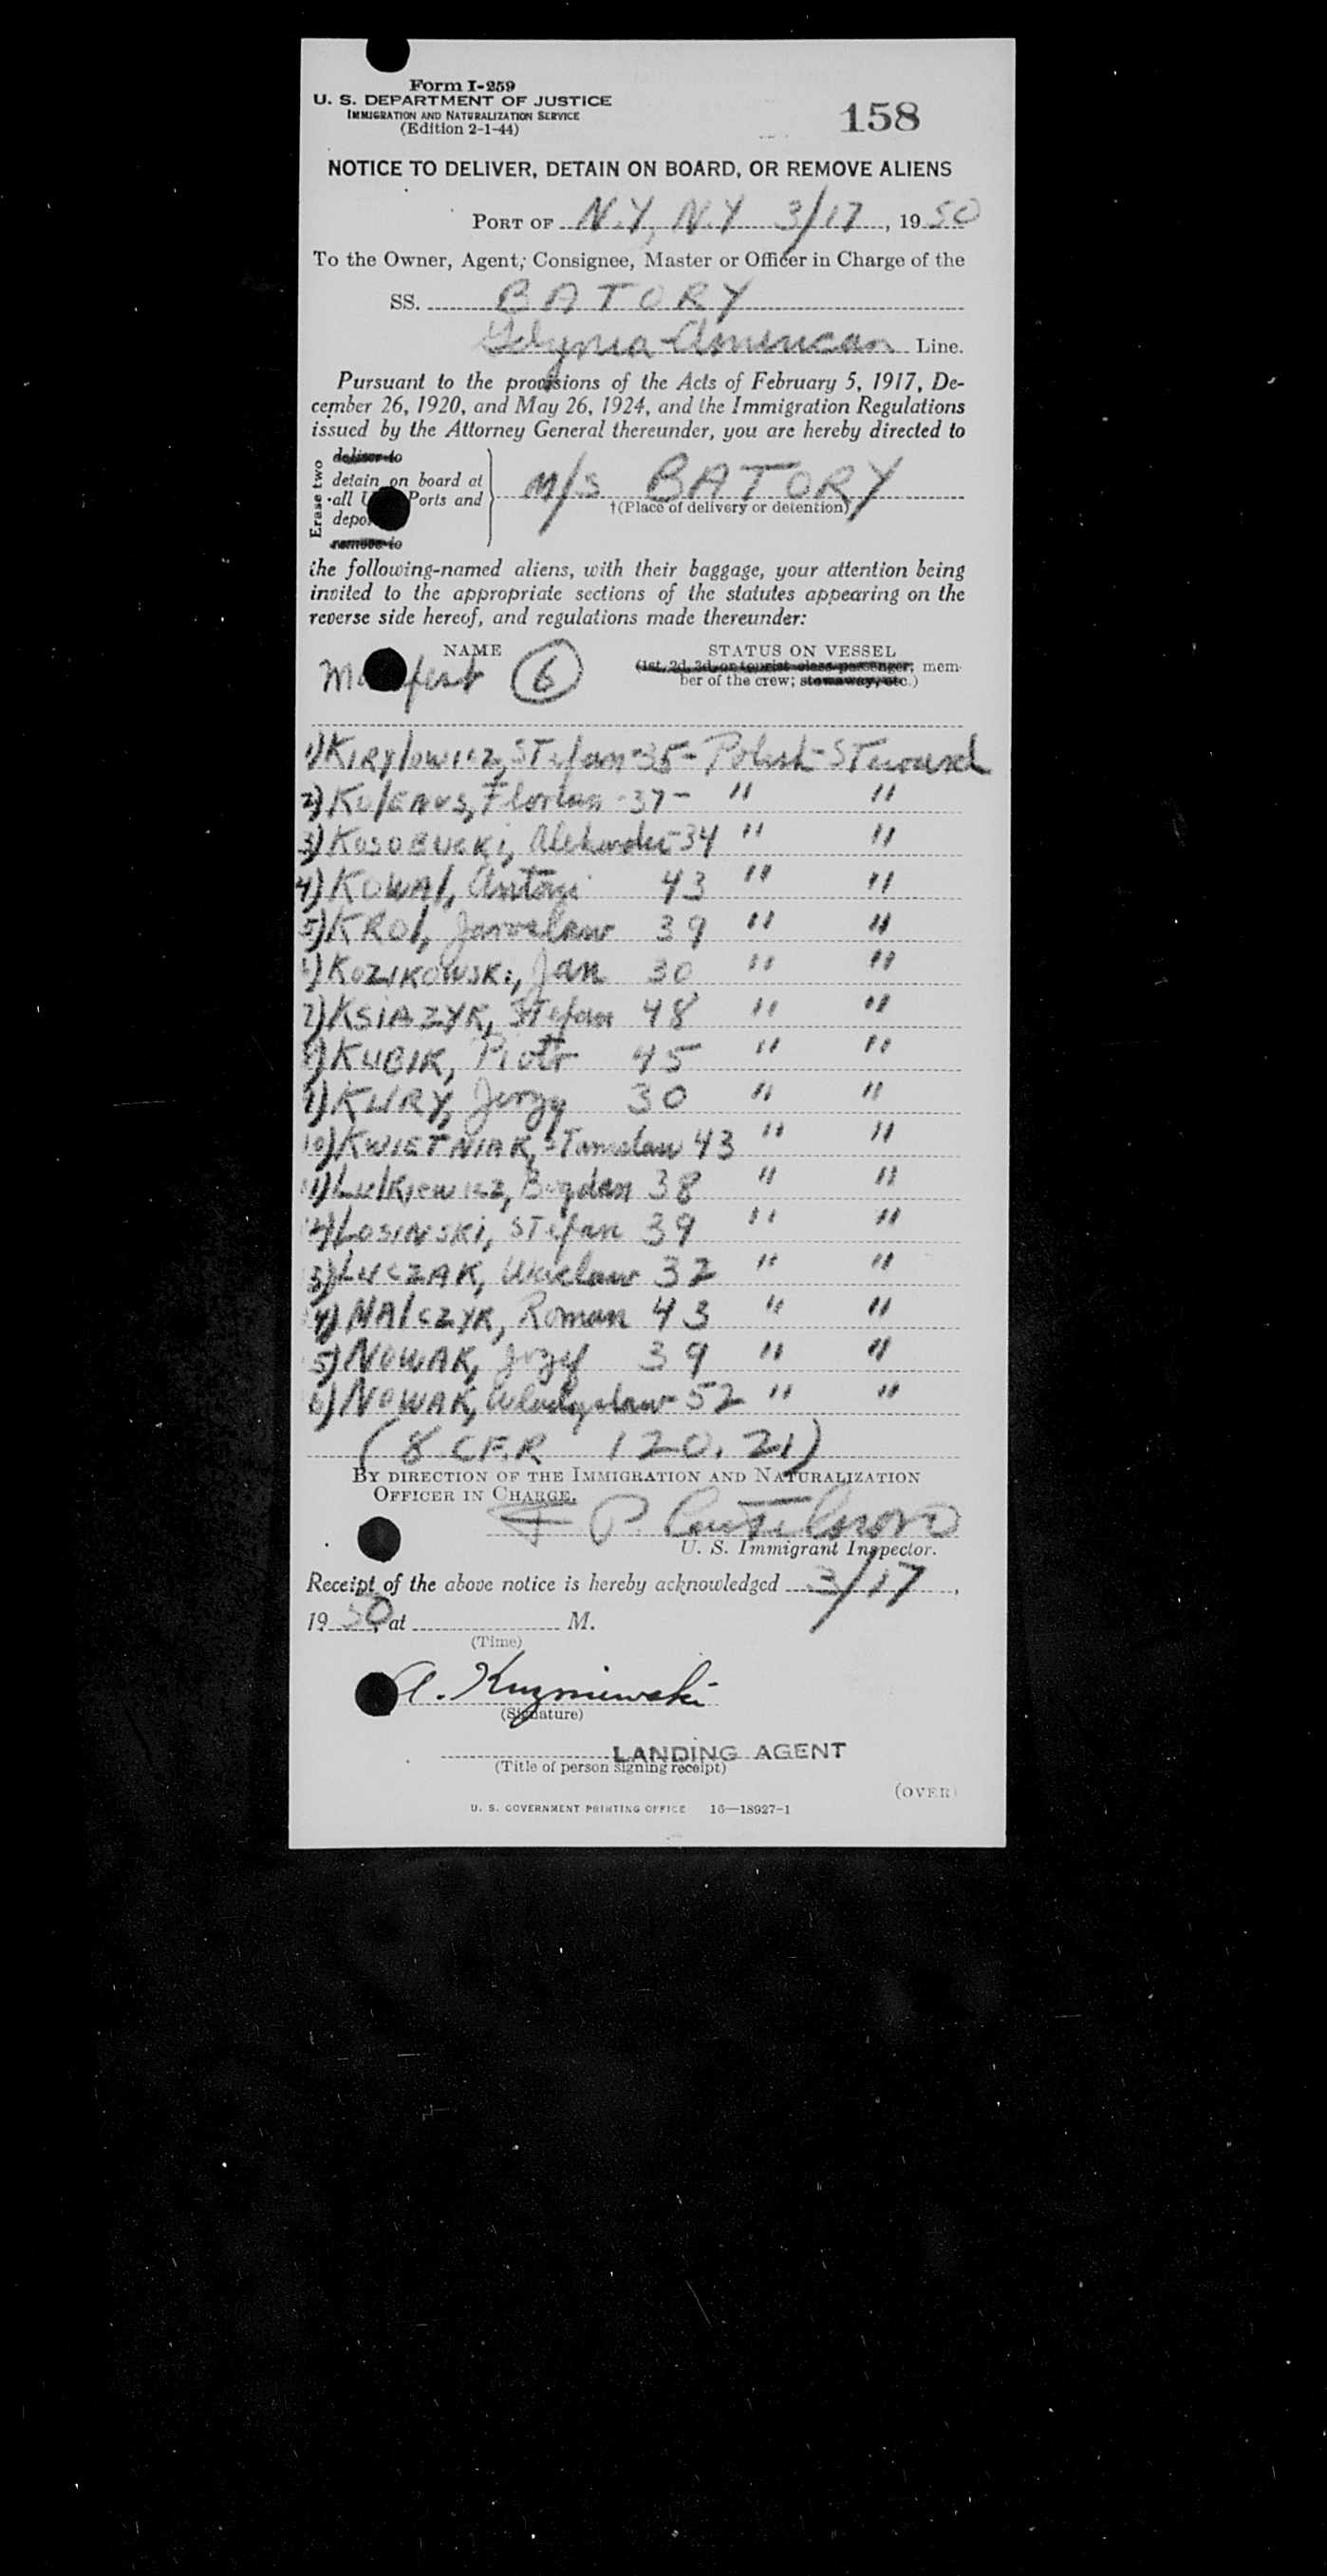 Form I-259
U. S. DEPARTMENT OF JUSTICE
IMMIGRATION AND NATURALIZATION SERVICE
(Edition 2-1-44)
158
NOTICE TO DELIVER, DETAIN ON BOARD, OR REMOVE ALIENS
PORT OF N.Y, N.Y 3/17, 1950
To the Owner, Agent, Consignee, Master or Officer in Charge of the
SS. BATORY
Gdynia-American Line.
Pursuant to the provisions of the Acts of February 5, 1917, De-
cember 26, 1920, and May 26, 1924, and the Immigration Regulations
issued by the Attorney General thereunder, you are hereby directed to
Erase two
deliver to
detain on board at
all Ports and
remove to
M/S BATORY
†(Place of delivery or detention)
the following-named aliens, with their baggage, your attention being
invited to the appropriate sections of the statutes appearing on the
reverse side hereof, and regulations made thereunder:
NAME
STATUS ON VESSEL
(1st, 2d, 3d, or tourist class passenger; mem-
ber of the crew; stowaway, etc.)
Manifest 6
1) KIRYlowicz, STefan-35- Polish-STeward
2) Florian-37- " "
3) KosoBucki, 34 " "
4) KOWAl, Antoni 43 " "
5) KROl, Jaroslaw 39 " "
6) KOZIKOWSKi, Jan 30 " "
7) KSiAZYK, STefan 48 " "
8) KUBIK, Piotr 45 " "
9) KURY, Jerzy 30 " "
10) KWIETNIAK, STanislaw 43 " "
11) Bogdan 38 " "
12) LOSINSKi, STefan 39 " "
13) LUCZAK, Waclaw 32 " "
14) NAlCZYK, Roman 43 " "
15) NOWAK, Jozef 39 " "
16) NOWAK, Wladyslaw-52 " "
(8 C.F.R 120.21)
BY DIRECTION OF THE IMMIGRATION AND NATURALIZATION
OFFICER IN CHARGE.
F P.
U. S. Immigrant Inspector.
Receipt of the above notice is hereby acknowledged 3/17,
1950, at M.
(Time)
A. Kuzniewski
(Signature)
LANDING AGENT
(Title of person signing receipt)
(OVER)
U. S. GOVERNMENT PRINTING OFFICE 16—18927-1